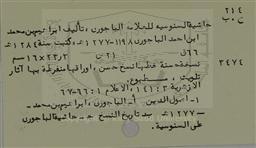 ٢١٤
ح . ب
حاشية السنوسيه للعلامة الباجوري، تأليف ابراهيم بن محمد
ابن احمد الباجوري ١١٩٨-١٢٧٧هـ، كتبت سنة ١٢٨٤هـ
٦٦ق ٢١س ٢٣٫٢×١٦سم
٣٤٧٤
نسخة حسنة، خطها نسخ حسن، اوراقها منفرطة بها آثار
تلويث، مطبوع.
الازهرية ١٤١:٣، الاعلام ٦٦:١-٦٧
١- اصول الدين أ- الباجوري، ابراهيم بن محمد -
١٢٧٧هـ ب- تاريخ النسخ ج- حاشية الباجوري
على السنوسية.